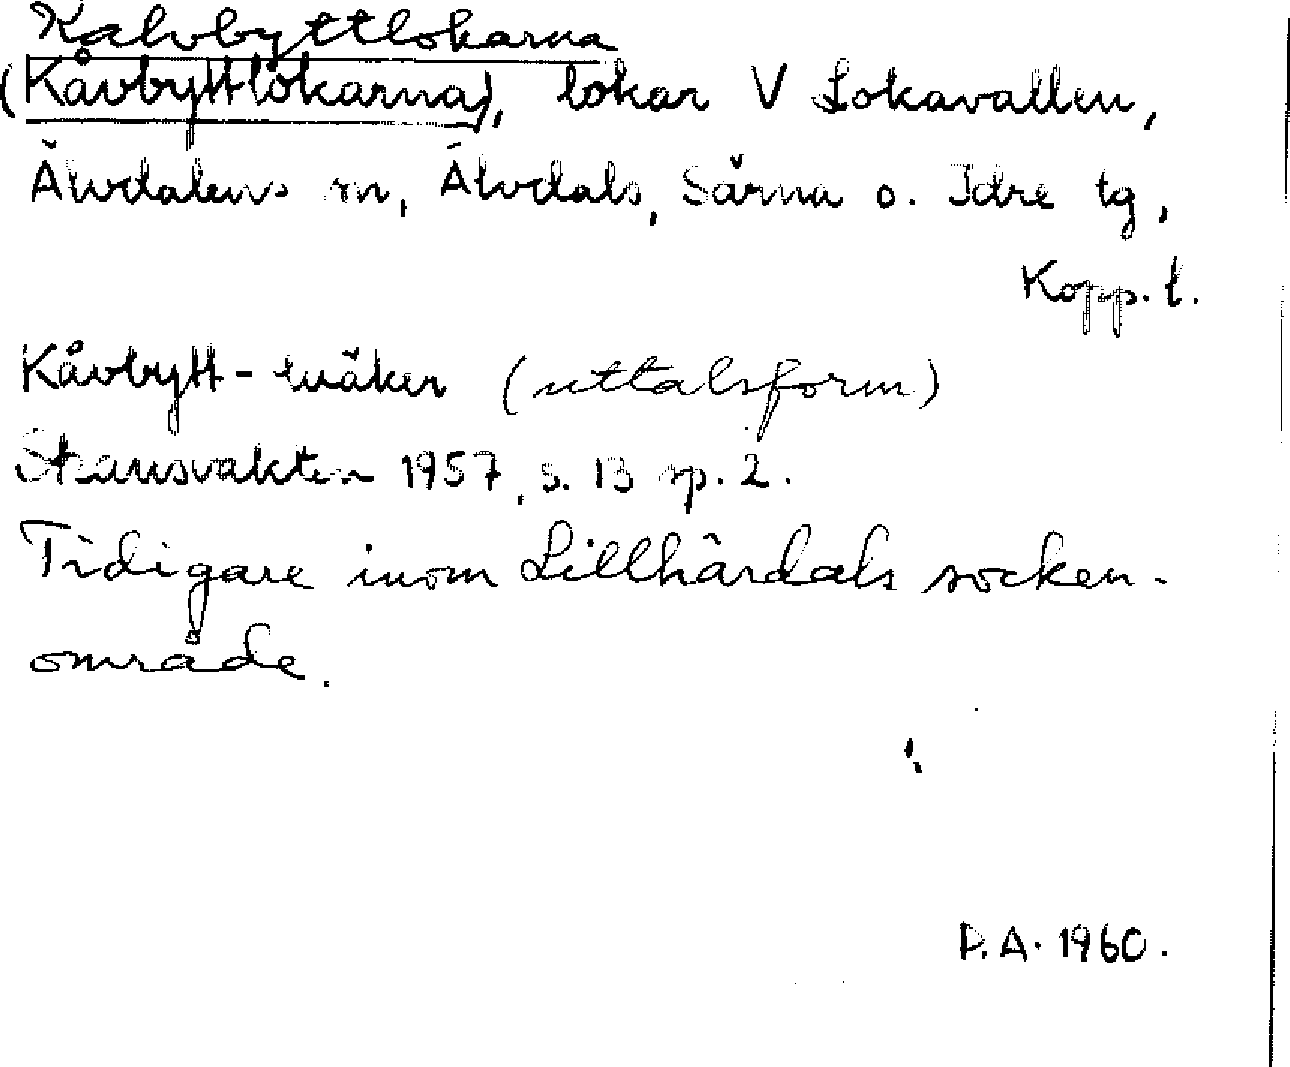 Kalvbyttlokarna
(Kåvbyttlokarna), lokar V Lokavallen,
Älvdalens sn, Älvdals, Särna o. Idre tg,
Kopp. l.
Kåvbytt-luäker (uttalsform)
Skansvakten 1957, s. 13 sp. 2.
Tidigare inom Lillhärdals socken-
område.
P.A. 1960.